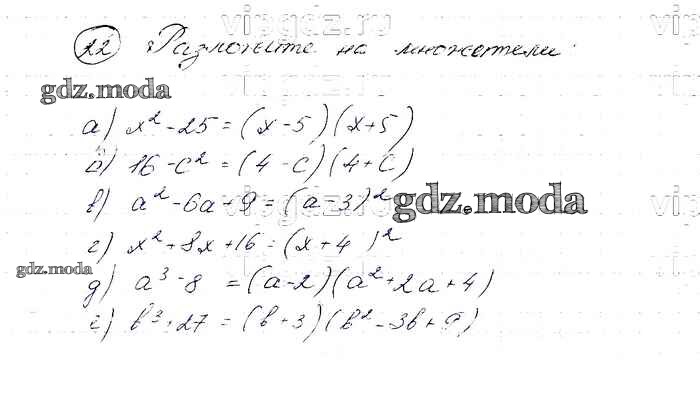 vipgdz.ru vipgdz.ru
22 Разложите на множители:
vipgdz.ru
gdz.moda
а) x² - 25 = (x - 5)(x + 5)
б) 16 - c² = (4 - c)(4 + c)
в) a² - 6a + 9 = (a - 3)²
gdz.moda
г) x² + 8x + 16 = (x + 4)²
gdz.moda
д) a³ - 8 = (a - 2)(a² + 2a + 4)
е) b³ + 27 = (b + 3)(b² - 3b + 9)